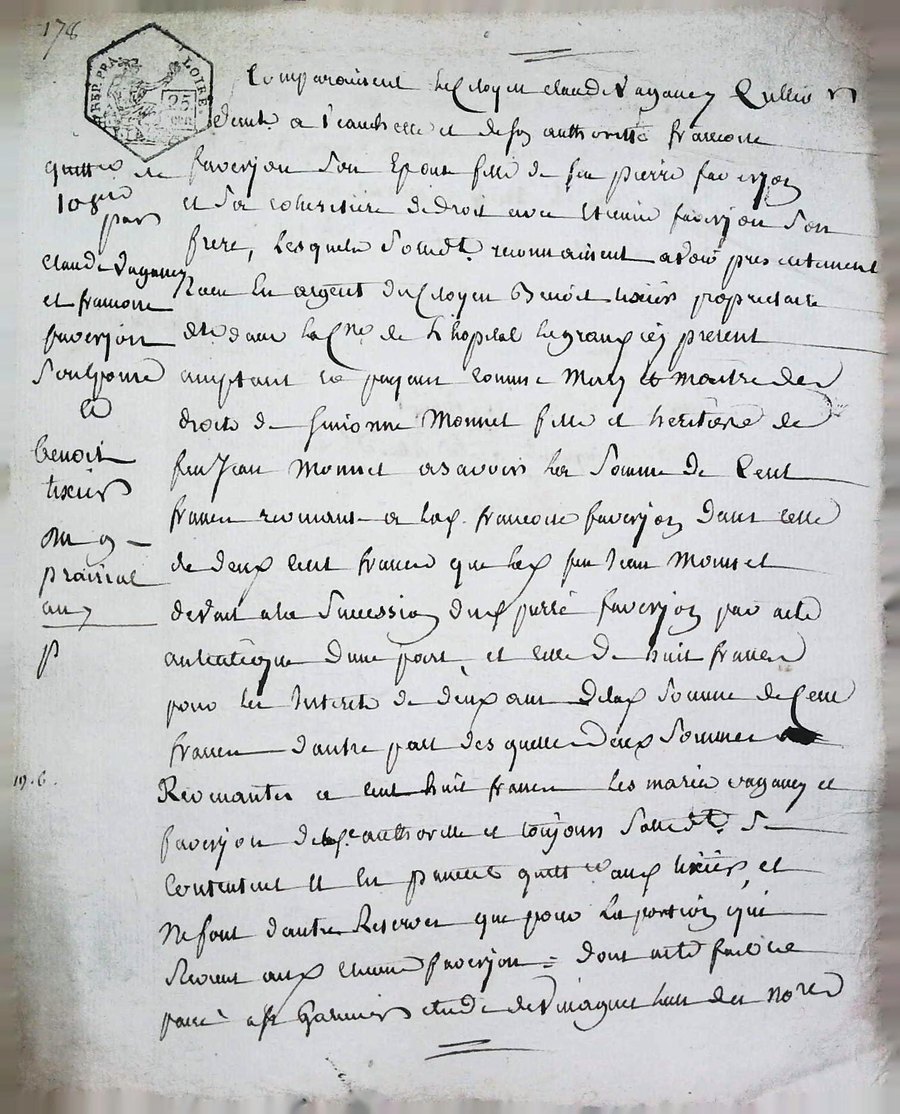 178
LOIRE.
25
Comparaissent le Citoyen Claude Vaganey
a et de son authorité francoise
faverjon Son Epouse fille de feu pierre faverjon
et Sa coheritière de droit avec Etienne faverjon Son
frere, Lesquels Soumdt. reconnaissent avoir presentement
Reçu En argent du Citoyen Benoit tixier proprietaire
dt. dans la Cne. de L'hopital Legrand icy present
acceptant Et payant comme Mary Et maitre des
droits de Monnet fille et heritière de
feu Jean Monnet asavoir La Somme de Cent
francs revenante a lad. francoise faverjon dans celle
de deux cent francs que led. feu Jean Monnet
devait a la Succession dud. pierre faverjon par acte
autentique d'une part, et celle de huit francs
pour les Interets de deux ans de lad. Somme de Cent
francs d'autre part des quelles deux Sommes
Revenantes a cent huit francs Les mariés vaganey et
faverjon de lad. authorité et toujours Se
Contentent Et En passent quittce. aud. tixier, et
Ne font d'autre Reserves que pour La portion qui
Revient aud. Etienne faverjon = dont acte fait et
passé a
quittce de
108#
par
Claude Vaganey
et francoise
faverjon
Son Epouse
a
benoit
tixier
du 9
prairial
an 7
19. 6.